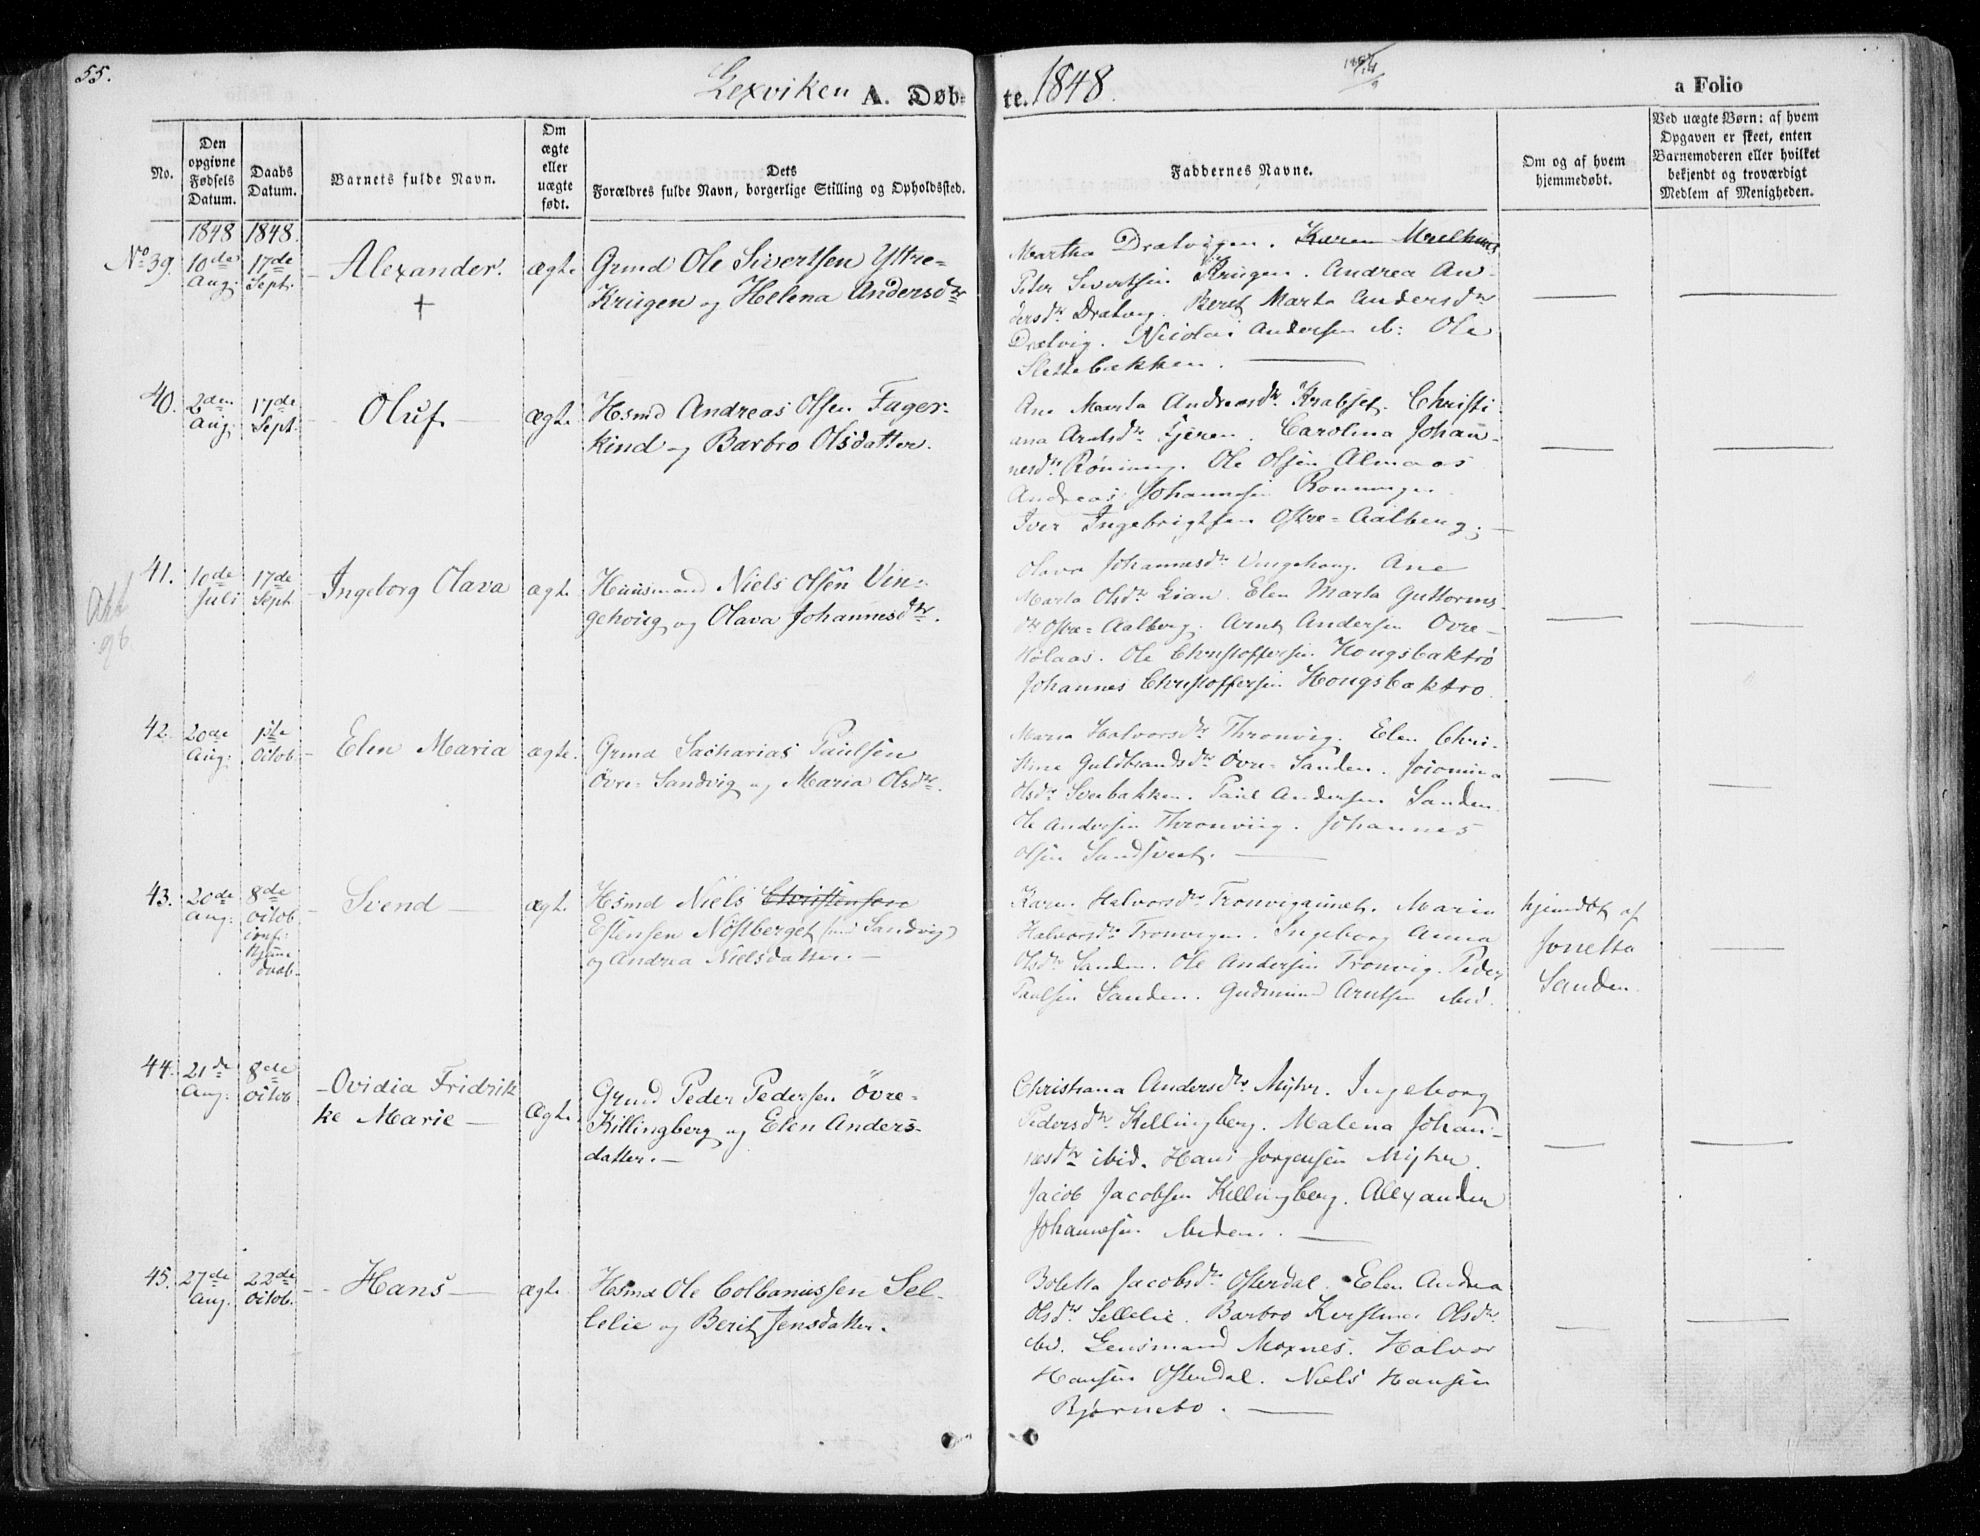 55.
Lexviken A. Døb-
te. 1848.
a Folio
No.
Den
opgivne
Fødsels
Datum.
Daabs
Datum.
Barnets fulde Navn.
Om
ægte
eller
uægte
født.
Dets
Forældres fulde Navn, borgerlige Stilling og Opholdssted.
Faddernes Navne.
Om og af hvem
hjemmedøbt.
Ved uægte Børn: af hvem
Opgaven er skeet, enten
Barnemoderen eller hvilket
bekjendt og troværdigt
Medlem af Menigheden.
1848 1848.
No 39.
10de
Aug:
17de
Sept.
Alexander.
†
ægte
Grmd Ole Sivertsen Yttre-
Krügen og Helena Andersdtr
Martha Dratvigen. Karen
Peter Sivertsen Krügen. Andrea An-
dersdtr Dratvig. Beret Marta Andersdtr
Dratvig. Nicolai Andersen ib: Ole
Slettebakken.
40.
2den
Aug.
17de
Sept.
Oluf.
ægte
Hsmd Andreas Olsen Fager-
kind og Barbro Olsdatter.
Ane Marta Andreasdtr Krabset. Christi-
ana Arntsdtr Tjeren. Carolina Johan-
nesdtr Røning. Ole Olsen Almaas
Andreas Johannesen Rønningen
Iver Ingebrigtsen Østre=Aalberg.
41.
10de
Juli
17de
Sept
Ingeborg Olava
ægte
Huusmand Niels Olsen Vin-
gehoug og Olava Johannesdtr.
Olava Johannesdtr Vingehoug. Ane
Marta Olsdtr Lian. Elen Marta Guttorms-
dtr Østre=Aalberg. Arnt Andersen Øvre-
Hølaas. Ole Christoffersen Hougsbaktrø
Johannes Christoffersen Hougsbaktrø.
42.
20de
Aug:
1ste
Octob.
Elen Maria
ægte.
Grmd Sacharias Paulsen
Øvre=Sandvig og Maria Olsdtr.
Maria Halvorsdtr Thronvig. Elen Chri-
stine Guldbrandsdtr Øvre=Sanden.
Olsdtr Sverbakken. Paul Andersen Sanden.
Ole Andersen Thronviig. Johannes
Olsen
43.
20de
Aug:
8de
Octob.
conf:
Hjem̄e
daab
Svend
ægt.
Hsmd Niels Christensen
Estensen Nøstberget (und Sandvig)
og Andrea Nielsdatter.
Karn. Halvorsdtr Tronvigaunet. Maria
Halvorsdtr Tronvigen. Ingeborg Anna
Olsdtr Sanden. Ole Andersen Tronvig. Peder
Paulsen Sanden. Gudmund Arntsen ibid.
hjemdøbt af
Jonetta
Sanden.
44.
21de
Aug:
8de
Octob
Ovidia Fridrik
ke Marie
ægte
Grmd Peder Pedersen Øvre-
Killingberg og Elen Anders-
datter.
Christiana Andersdtr Myhr. Ingeborg
Pedersdtr Killingberg. Malena Johan-
nesdtr ibid. Hans Jørgensen Myhr.
Jacob Jacobsen Killingberg. Alexander
Johannesen ibidem.
45.
27de
Aug.
22de
Octob.
Hans
ægte
Hsmd Ole Colbanussen Sel-
lelie og Berit Jensdatter.
Boletta Jacobsdtr Østerdal. Elen Andrea
Olsdtr Sellelie. Barbro Kirstine Olsdtr.
ibid. Lensmand Moxnes. Halvor
Hansen Østerdal. Niels Hansen
Bjørnebo.